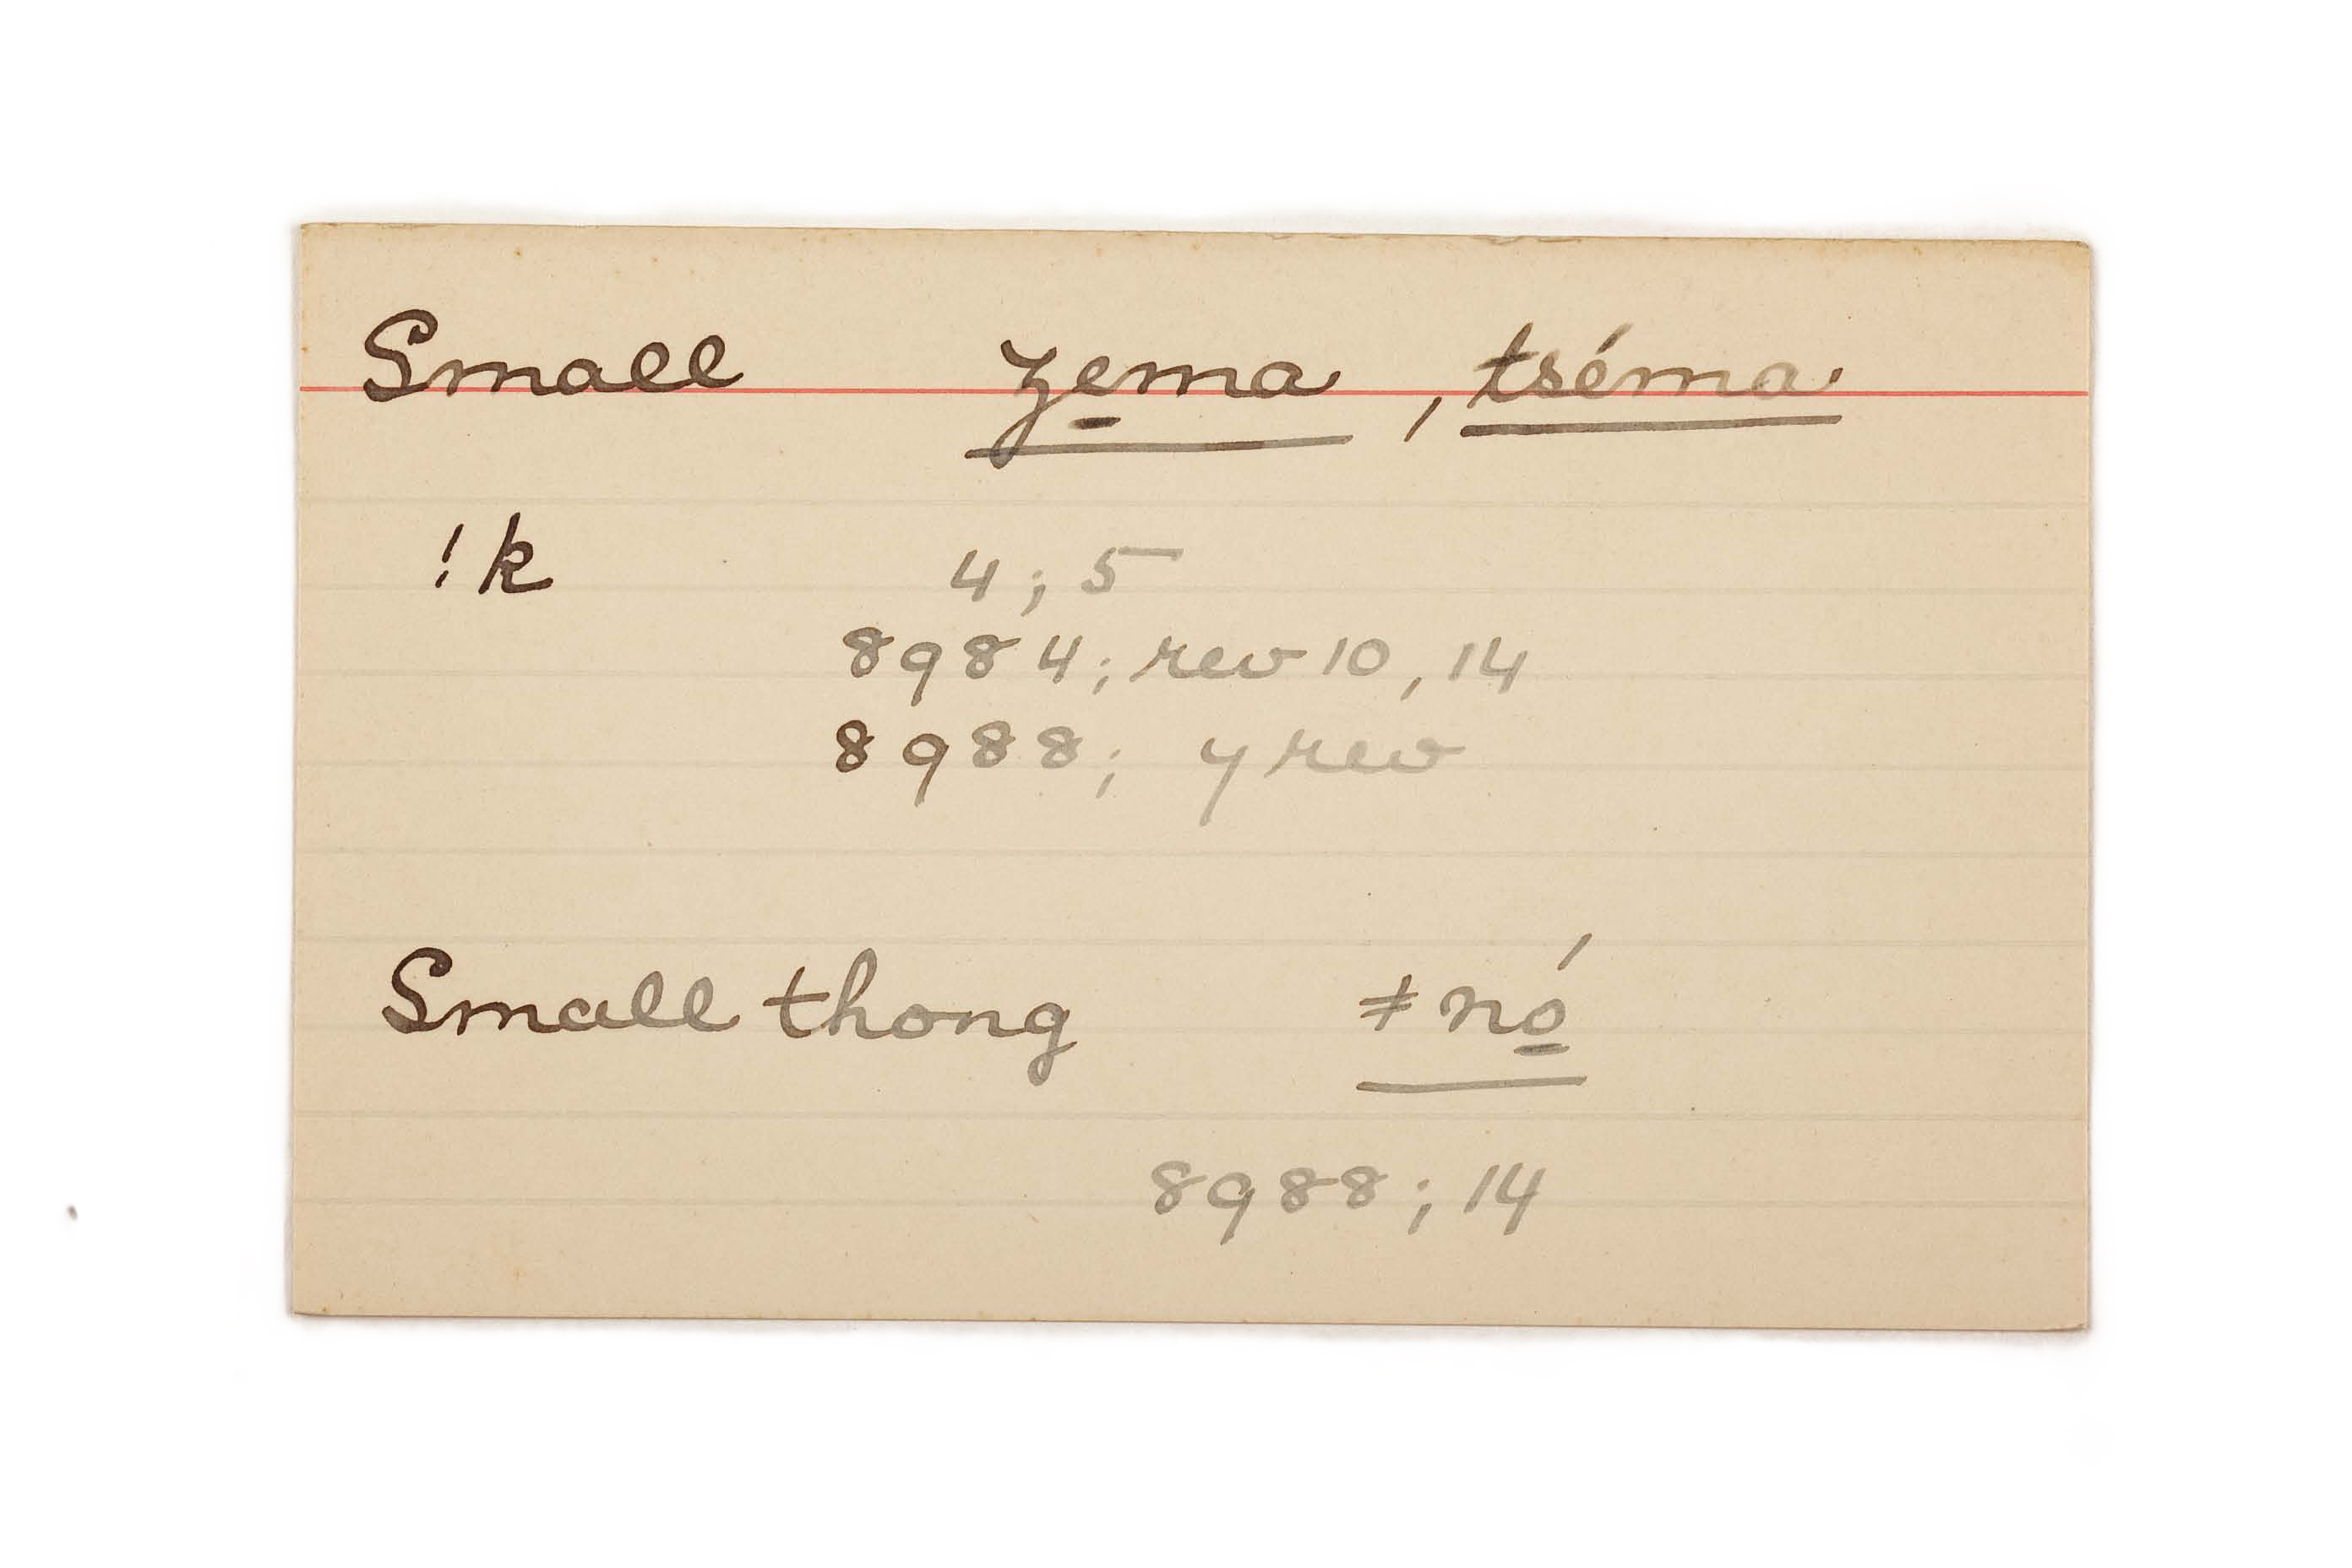 Small z̲e̲ma, tséma.
!k 4; 5
8984; rev 10, 14
8988; y rev
Small thong ≠nó̲
8988; 14